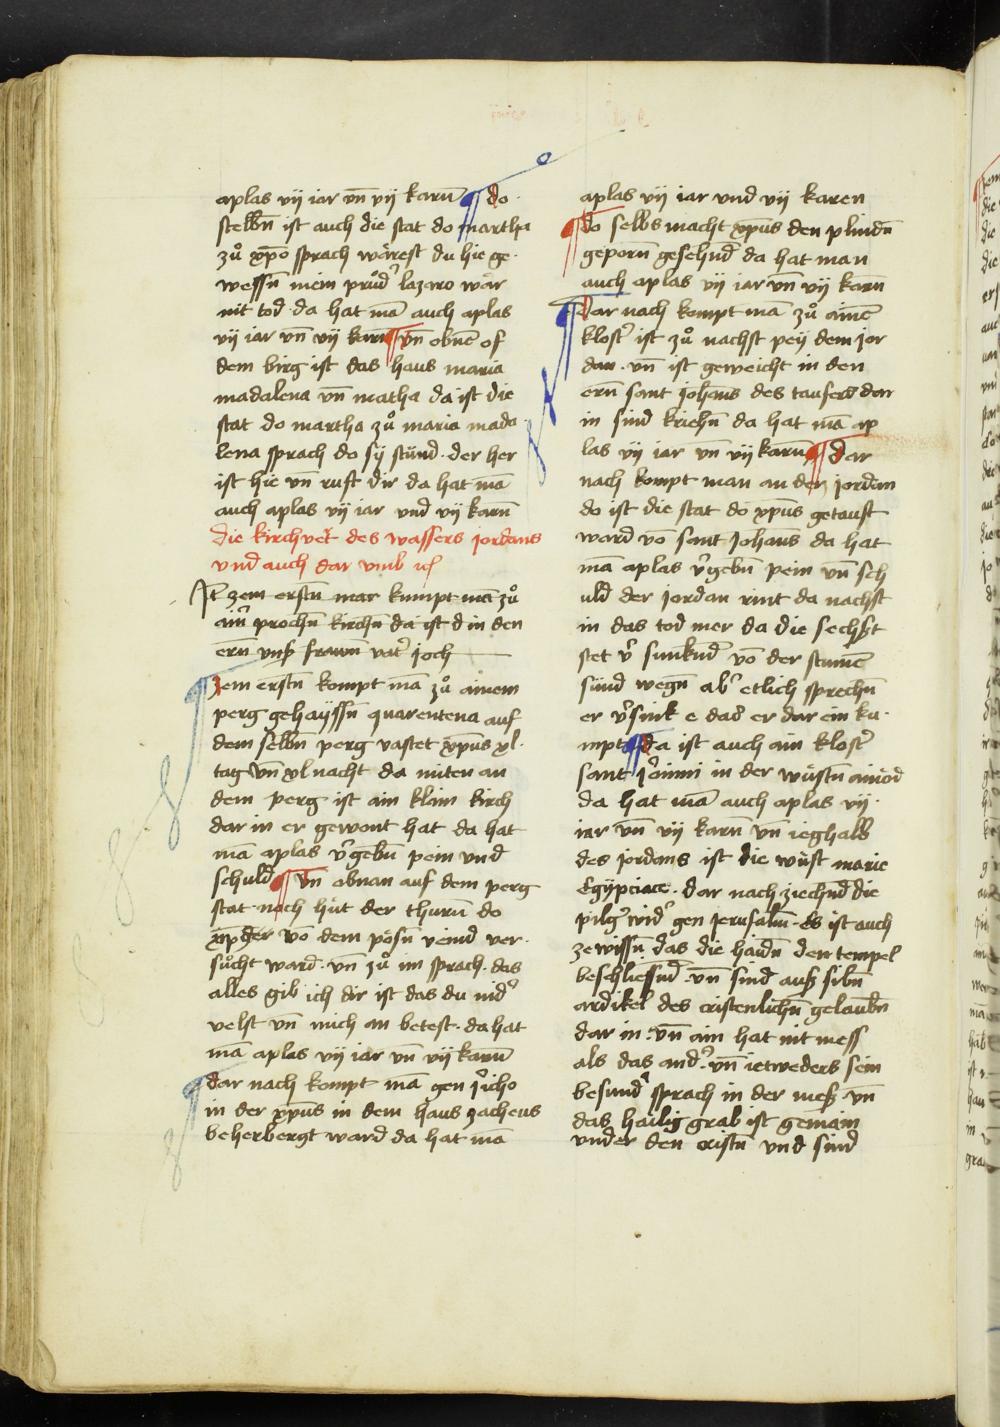 aplas vij iar vn̄ vij karn̄ ¶ do
selbn̄ ist auch die stat do martha
zů xp̄o sprach wärest du hie ge-
wessn̄ mein průdʾ lazaro wär
nit tod da hat mā auch aplas
vij iar vn̄ vij karn̄ ¶ vn̄ obnē of
dem birg ist das haus maria
madalena vn̄ matha da ist die
stat do martha zů maria mada
lena sprach do sy stůnd · der her
ist hie vn̄ ruft dir da hat mā
auch aplas vij iar vnd vij karn̄
die kirchvēt des wassers jordans
vnd auch dar vmb
Jt zem erstn̄ mar kumpt mā zů
ainʾ prochn̄ kirchn̄ da ist d in den
ern̄ vnsʾ frawn̄ vatʾ joch
¶ zem erstn̄ kompt mā zů ainem
perg gehayssn̄ quarentena auf
dem selbn̄ perg vastet xp̄us xl·
tag vn̄ xl nacht da miten an
dem perg ist ain klain kirch
dar in er gewont hat da hat
mā aplas vʾgebn̄ pein vnd
schuld ¶ vn̄ obnan auf dem perg
stat noch hůt der thurn̄ do
xp̄ der vō dem pösn̄ veind ver-
sůcht ward · vn̄ zů im sprach · das
alles gib ich dir ist das du nidʾ
velst vn̄ mich an betest · da hat
mā aplas vij iar vn̄ vij karn̄
¶ dar nach kompt mā gen jʾicho
in der xp̄us in dem haus zacheus
beherbergt ward da hat mā
aplas vij iar vnd vij karen
¶ do selbs macht xp̄us den plindn̄
geporn̄ gesehnd̄ da hat man
auch aplas vij iar vn̄ vij karn̄
¶ Dar nach kompt mā zů ainē
klostʾ ist zů nachst pey dem jor
dan · vn̄ ist geweicht in den
ern̄ sant johans des taufers dar
in sind kriehn̄ da hat mā ap
las vij iar vn̄ vij karn̄ ¶ Dar
nach kompt man an den jordan
do ist die stat do xp̄us getauft
ward vo sant Johans da hat
mā aplas vʾgebn̄ pein vn̄ sch
uld der Jordan rint da nachst
in das tod mer da die sechst
stet vʾ sunkndʾ vō der stumē
sünd wegn̄ abʾ etlich sprechn̄
er vʾsink e das er dar ein ku-
mpt ¶ da ist auch ain klostʾ
sant jʾoinmi in der wůstn̄ ainöd
da hat mā auch aplas vij·
iar vn̄ vij karn̄ vn̄ ieghalb
des jordans ist die wůst marie
Egypciace · dar nach ziechnd̄ die
pilgʾ widʾ gen jerusalm̄ · es ist auch
ze wissn̄ das die haidn̄ den tempel
beschliesnd̄ · vn̄ sind auß sibn̄
ardikel des cristenlichn̄ gelaubn̄
dar in · vn̄ ain hat nit mess
als das andʾ · vn̄ ietweders sein
besundʾ sprach in der meß · vn̄
das hailig grab ist gemain
vnder den cristn̄ vnd sind